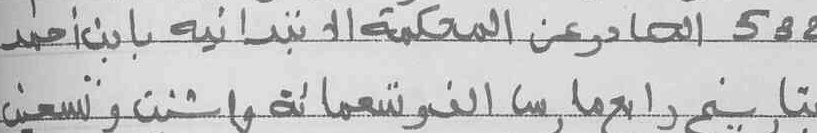 588 الصادر عن المحكمة الابتدائية بابن أحمد
بتاريخ رابع مارس الف وتسعمائة واثنين وتسعين